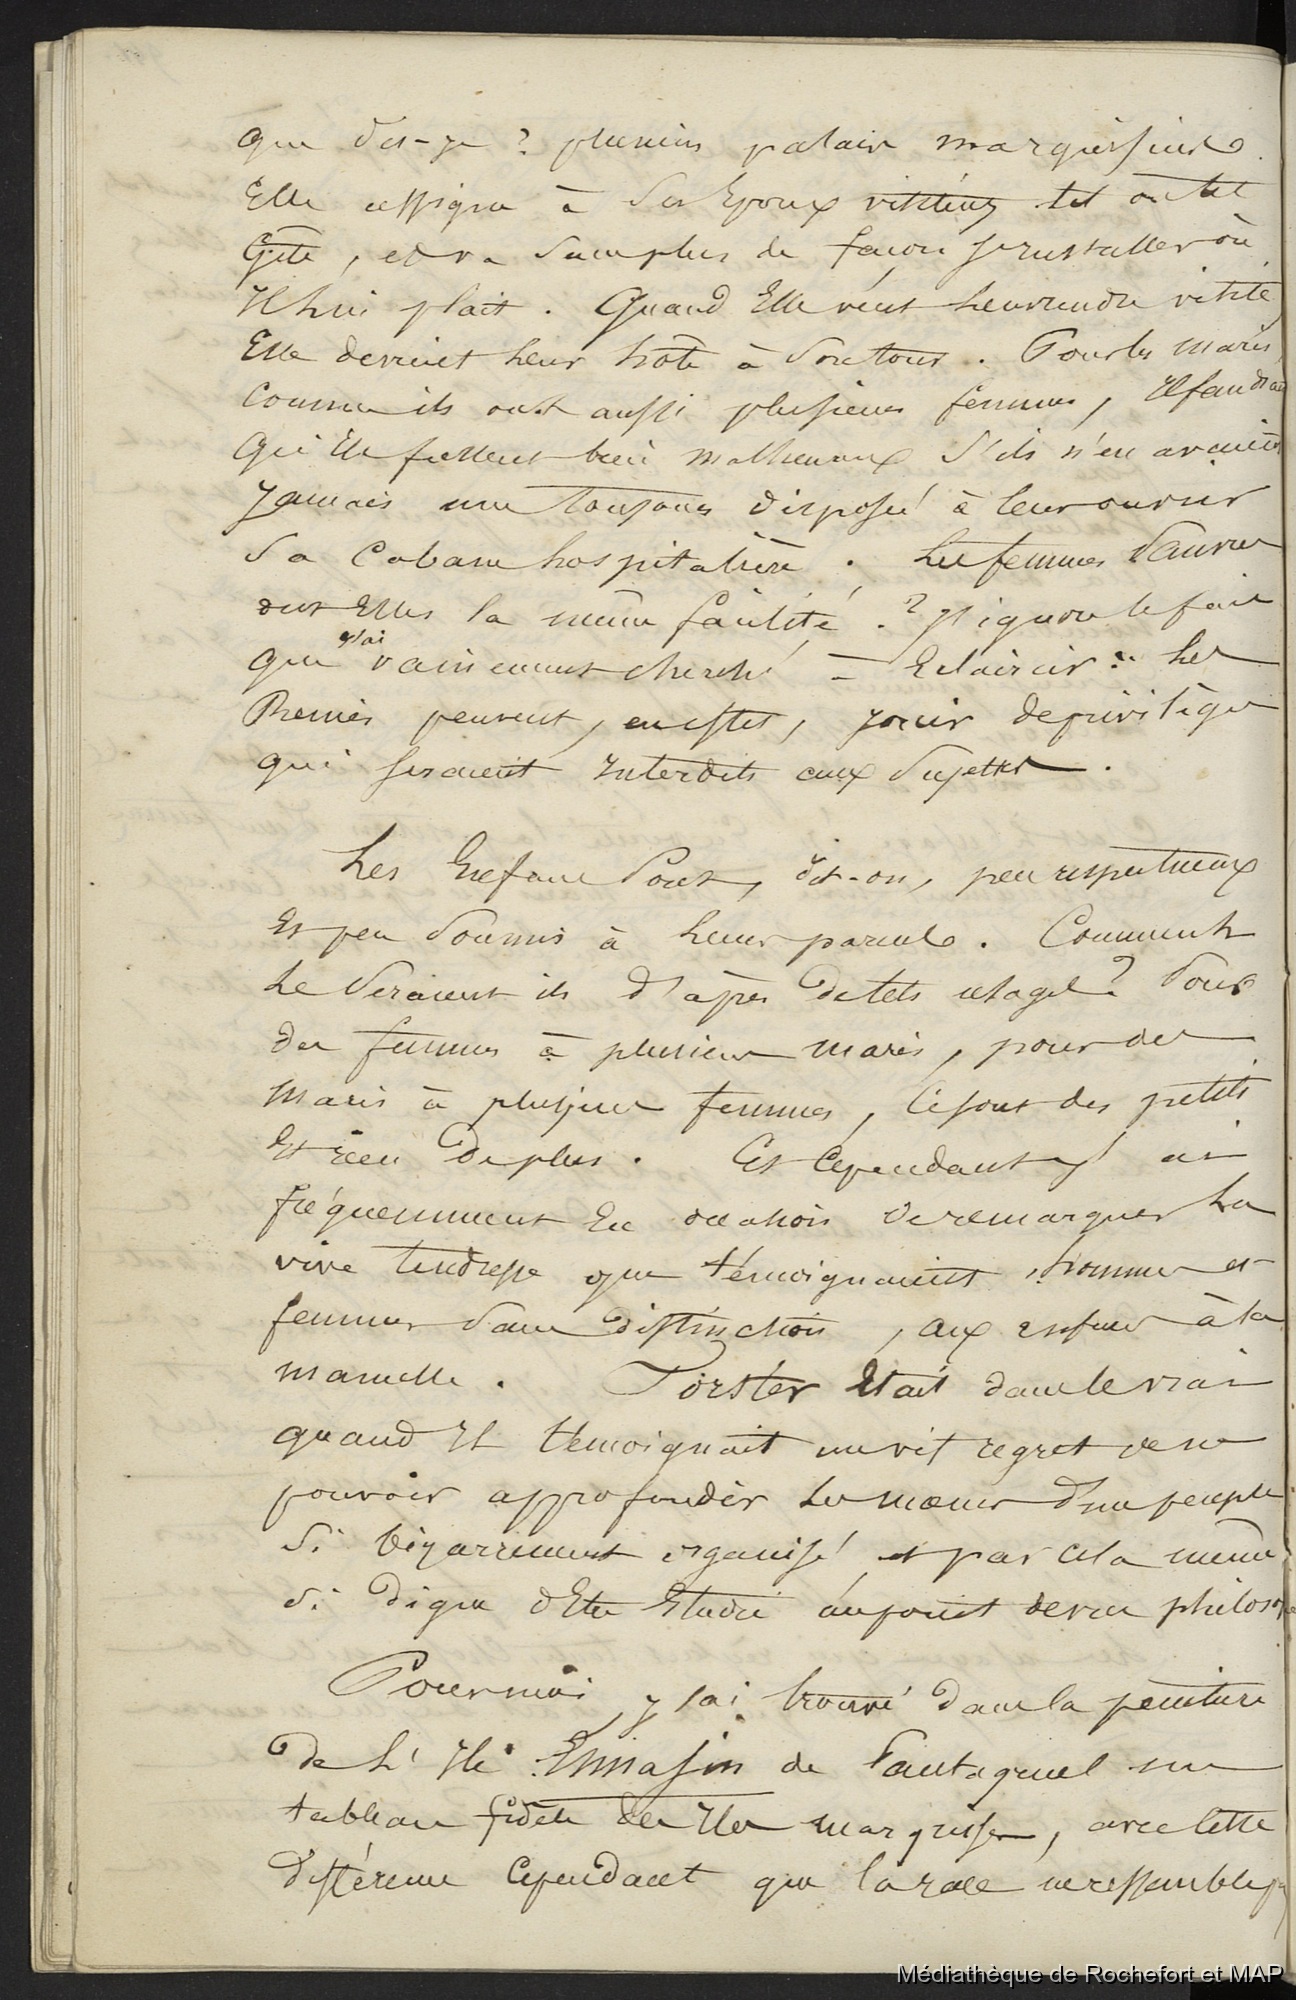 que dis-je ? plusieurs palais marquisiens.
Elle assigne à ses Epoux tel ou tel
Gîte, et va sans plus de façon s'installer où
Il lui plait. Quand Elle veut leur rendre visite
Elle devient leur hôte à son tour. Pour les maris,
Comme ils ont aussi plusieurs femmes, Il faudrait
qu'Ils fussent bien malheureux s'ils n'en avaient
Jamais une toujours disposée à leur ouvrir
Sa Cabane hospitalière. Les femmes Pauvres
ont Elles la même facilité ? J'ignore le fait
que j'ai vainement cherché à Eclaircir. Les
Premières peuvent, en effet, jouir de privilèges
qui seraient Interdits aux Sujettes.
Les Enfans Sont, dit-on, peu respectueux
Et peu Soumis à leurs parents. Comment
Le Seraient ils d'après de tels usages ? Pour
des femmes à plusieurs maris, pour des
maris à plusieurs femmes, Ce sont des petits
Et rien de plus. Et Cependant j'ai
fréquemment Eu occasion de remarquer La
vive tendresse que témoignaient hommes et
femmes sans distinction, aux enfans à la
mamelle. Forster Etait dans le vrai
quand Il témoignait un vif regret de ne
pouvoir approfondir les mœurs d'un peuple
Si bizarrement organisé, et par cela même
Si digne d'Etre Etudié au point de vue philosop
Pour moi, j'ai trouvé dans la peinture
de L'Ile Ennasin de Pantagruel un
tableau fidèle des Iles marquises, avec cette
différence Cependant que la race ne ressemble pas